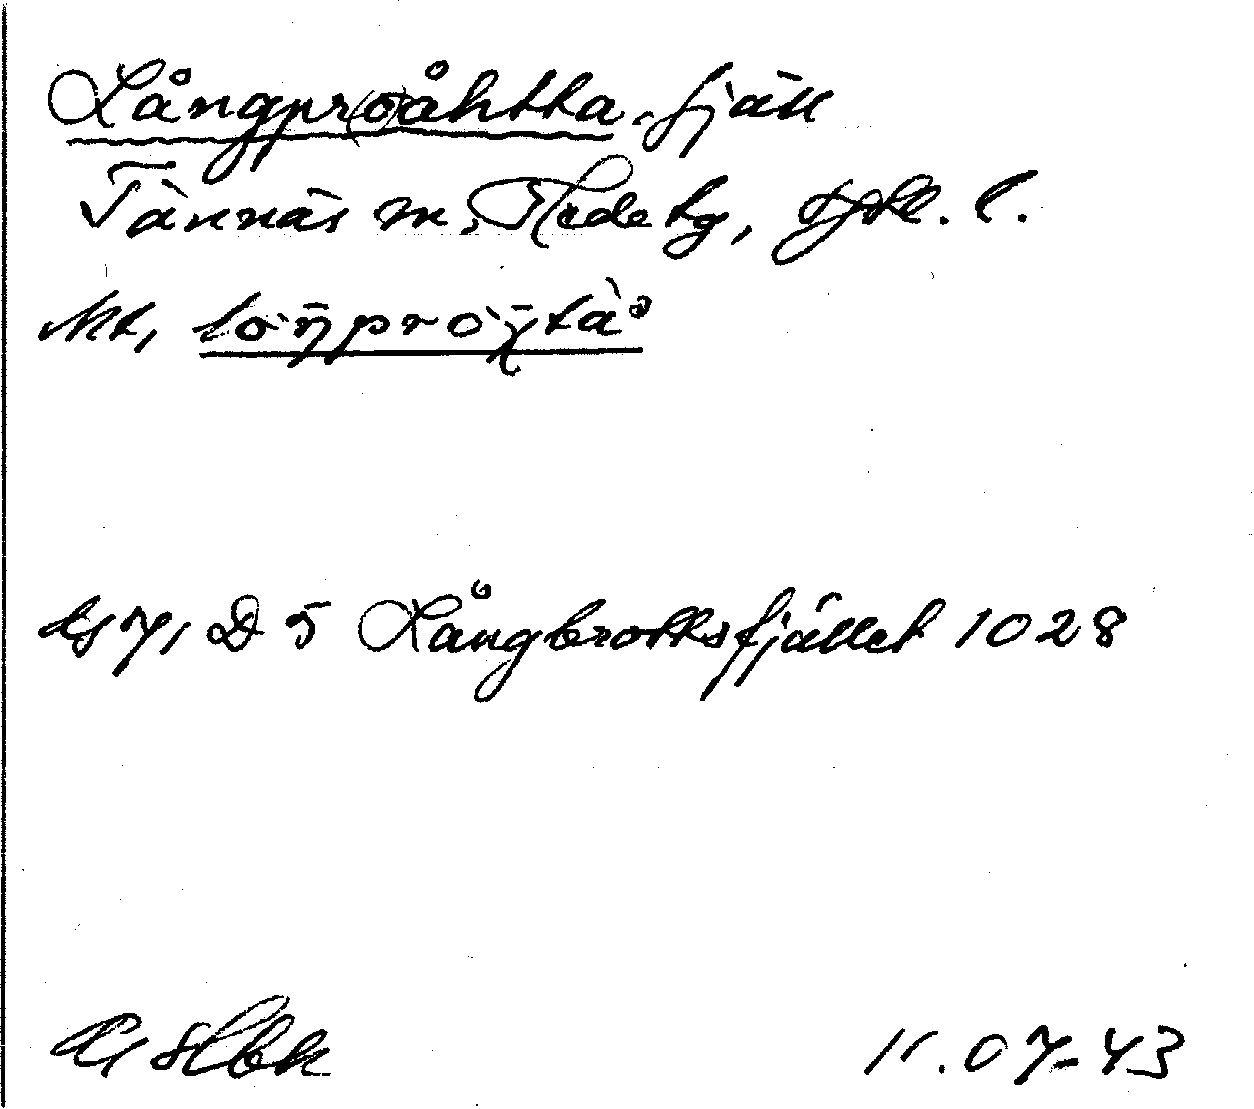 Långpr(o)åhtta. fjäll
Tännäs m, Hede tg, Jtl. l.
Mt, lòŋpròχtà
GS 7, D 5 Långbrottsfjället 1028
11.07-43